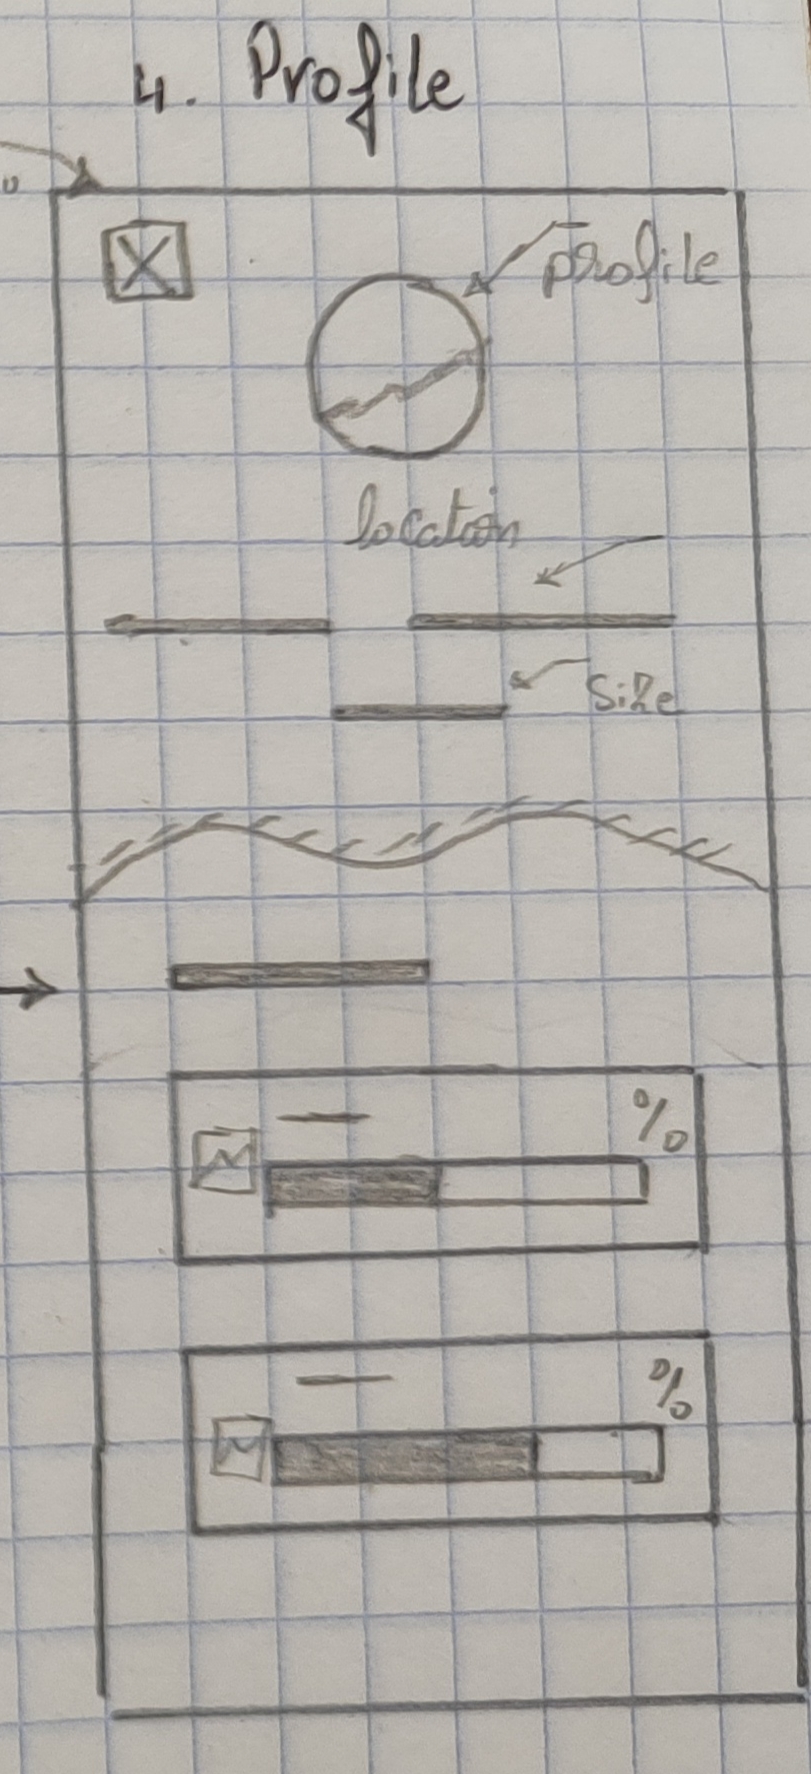 4. Profile
X
profile
location
size
%
%